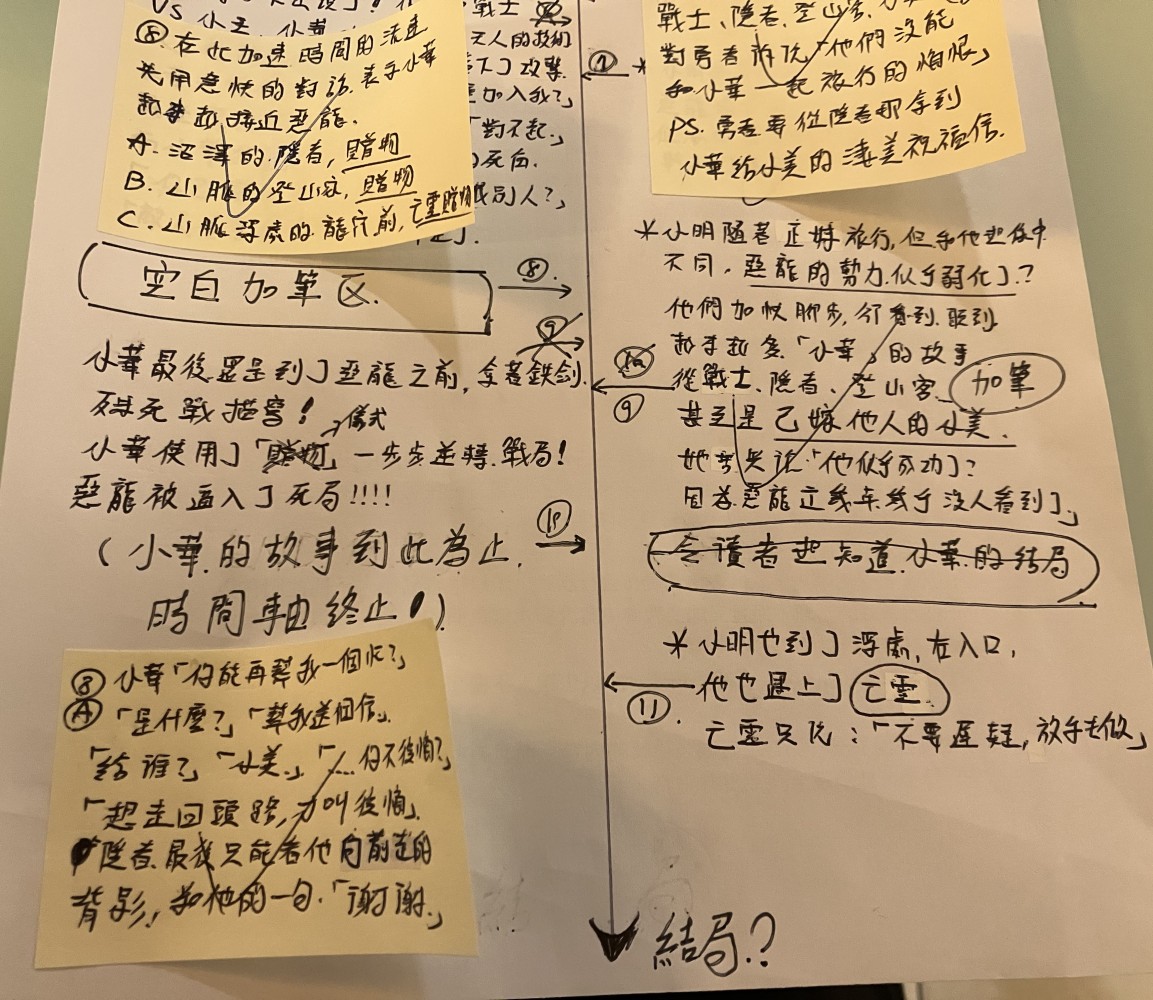 VS 小王、小華
戰士
⑧. 在此加速時間的流逝
先用急快的對話.表示小華
越來越接近惡龍.
A. 沼澤的.隱者, 贈物
B. 山脈的登山客, 贈物
C. 山脈深處的.龍穴前, 亡靈贈物
的技術
攻擊.
加入我?」
「對不起.」
死白.
別人?」
空白加筆区.
⑧.
⑨
小華最後還是到了惡龍之前, 拿著鉄劍.
殊死戰描寫!
儀式
小華使用了「贈物」一步步逆轉.戰局!
惡龍被逼入了死局!!!!
(小華.的故事到此為止.
時間軸終止!)
⑩
⑧ 小華「你能再幫我一個忙?」
Ⓐ 「是什麼?」「幫我送個信.」
「給誰?」「小美.」「.... 你不後悔?」
「想走回頭路,才叫後悔」.
隱者.最後只能看他向前走的
背影, 和他的一句.「謝謝.」
戰士、隱者、登山客.
對勇者訴說「他們沒能
和小華一起旅行的悔恨」
PS. 勇者要從隱者那拿到
小華給小美的淒美祝福信.
⑦ *
*小明隨著 正轉旅行, 但和他想像中
不同, 惡龍的勢力.似乎弱化了.?
他們加快腳步, 卻看到.聽到
越來越多.「小華」的故事
從戰士、隱者、登山客. 加筆
⑩
⑨
甚至是 已嫁他人的小美.
她苦笑說「他似乎成功了?
因為惡龍這幾年幾乎沒人看到了」
令讀者想知道.小華.的結局
*小明也到了深處, 在入口,
他也遇上了亡靈.
⑪.
亡靈只說:「不要遲疑, 放手去做」
結局.?